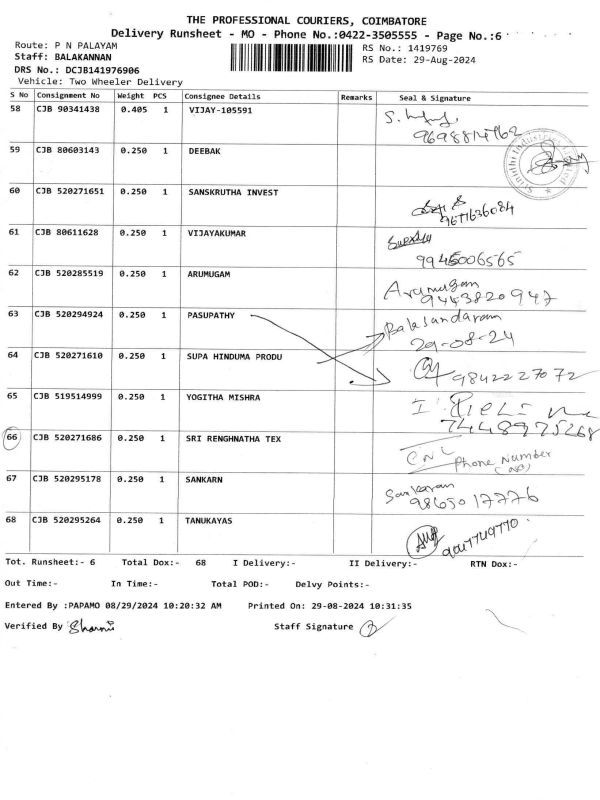 THE PROFESSIONAL COURIERS, COIMBATORE
Delivery Runsheet - MO - Phone No.:0422-3505555 - Page No.:6
Route: P N PALAYAM
RS No.: 1419769
Staff: BALAKANNAN
RS Date: 29-Aug-2024
DRS No.: DCJB141976906
Vehicle: Two Wheeler Delivery
S No Consignment No Weight PCS Consignee Details Remarks Seal & Signature
58 CJB 90341438 0.405 1 VIJAY-105591
9698814762
59 CJB 80603143 0.250 1 DEEBAK
60 CJB 520271651 0.250 1 SANSKRUTHA INVEST
9677636084
61 CJB 80611628 0.250 1 VIJAYAKUMAR
9945006565
62 CJB 520285519 0.250 1 ARUMUGAM
Arumugam
9443820947
63 CJB 520294924 0.250 1 PASUPATHY
Balasandaram
29-08-24
64 CJB 520271610 0.250 1 SUPA HINDUMA PRODU
9842227072
65 CJB 519514999 0.250 1 YOGITHA MISHRA
7448975268
66 CJB 520271686 0.250 1 SRI RENGHNATHA TEX
Phone Number
67 CJB 520295178 0.250 1 SANKARN
Sankaran
9865017776
68 CJB 520295264 0.250 1 TANUKAYAS
9047749770
Tot. Runsheet:- 6 Total Dox:- 68 I Delivery:- II Delivery:- RTN Dox:-
Out Time:- In Time:- Total POD:- Delvy Points:-
Entered By :PAPAMO 08/29/2024 10:20:32 AM Printed On: 29-08-2024 10:31:35
Verified By
Staff Signature